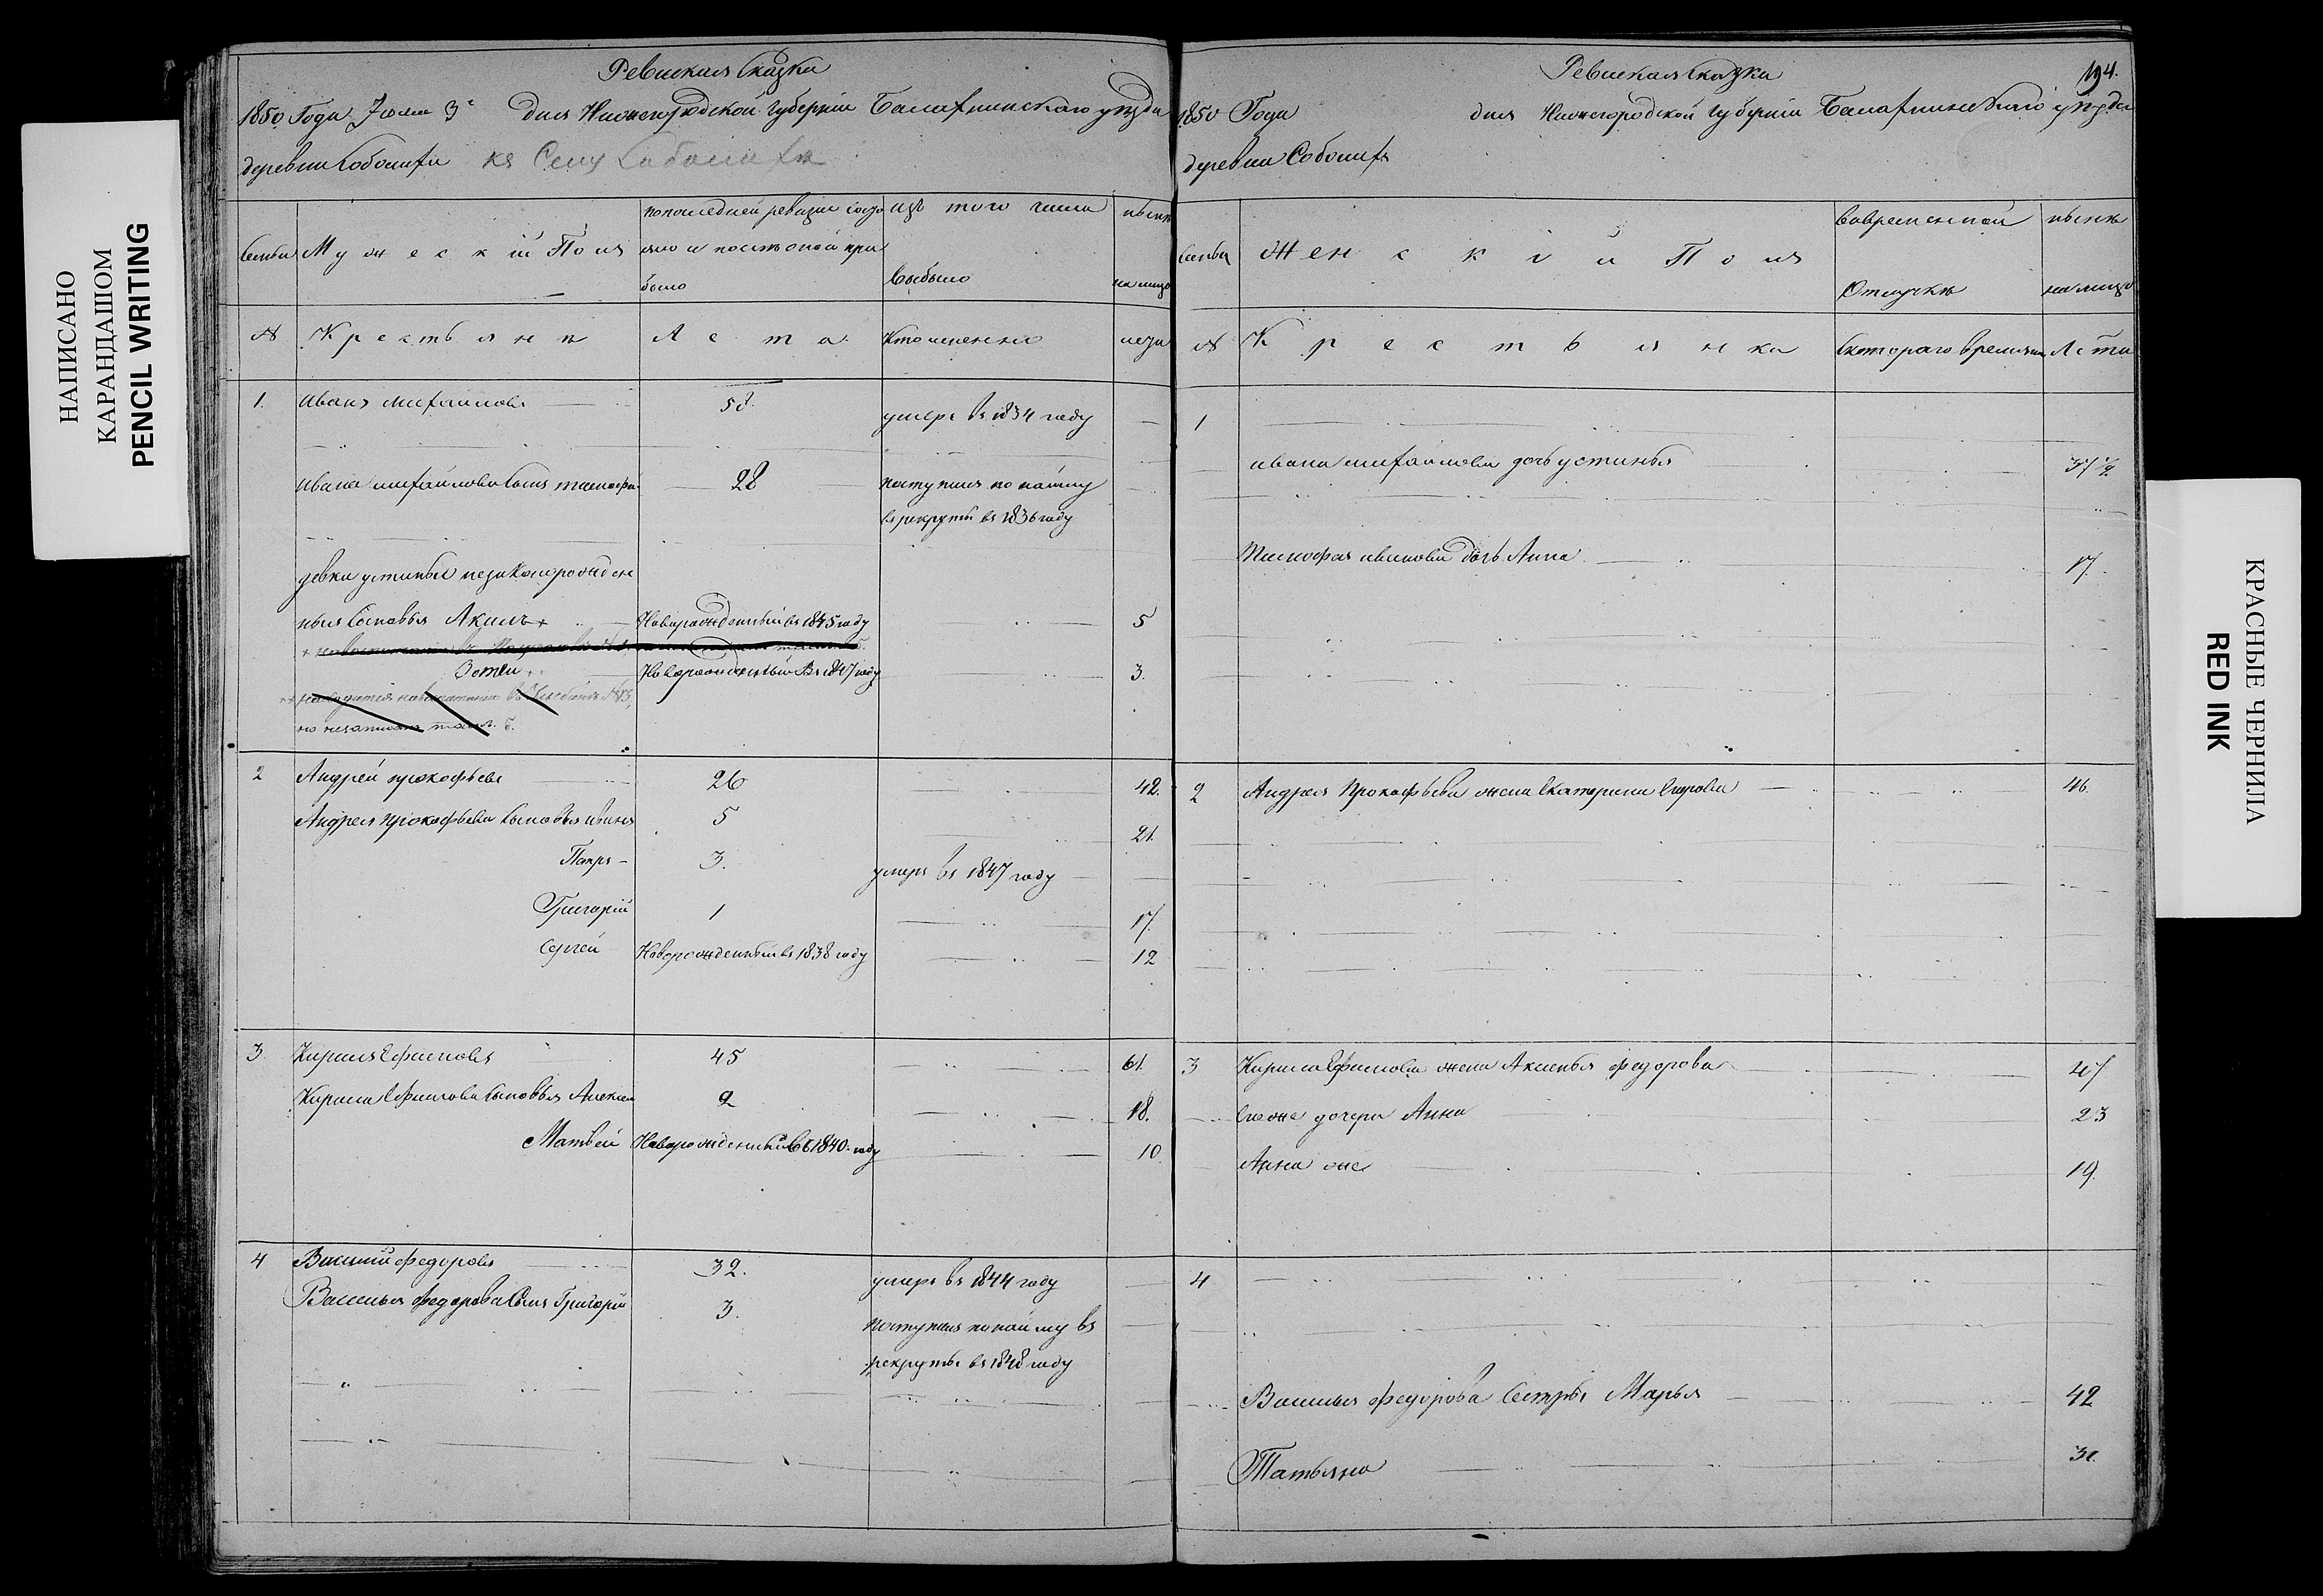 НАПИСАНО
КАРАНДАШОМ
PENCIL WRITING
Ревиская Сказка
1850 Года Июля 3 дня Нижегородской Губернiи Балахнинскаго уезда
деревни Соболиха къ Селу
Семьи
Мужескiй Полъ
по последней ревизiи состо
яло и после оной при
было
изъ того числа
выбыло
ныне
на лицо
№
Крестьяне
Лета
Кто именно
лета
1.
Иванъ михайловъ
58.
умеръ въ 1834 году
Ивана михайлова Сынъ тимофей
28
поступилъ по найму
въ рекруты въ 1836 году
девки устиньи незаконорожден
ныя Сыновья Акимъ +
Новорожденный въ 1845 году
5
Зотей
Новорожденный Въ 1847 году
3.
2
Андрей прокофьевъ
26
42.
Андрея прокофьева Сыновья иванъ
5
21.
Петръ
3.
умеръ въ 1847 году
Григорiй
1
17.
Сергей
Новорожденный въ 1838 году
12
3.
Кирила Ефимовъ
45
61.
Кирила Ефимова Сыновья Алексей
2
18.
Матвей
Новорожденный въ 1840. году
10
4
Василiй федоровъ
32.
умеръ въ 1844 году
Василья федорова Сынъ Григорiй
3.
поступилъ по найму въ
рекруты въ 1848 году
Ревиская Сказка
194.
1850 Года дня Нижегородской Губернiи Балахнинскаго уезда
деревни Соболихе
Семьи
Женскiй Полъ
во временной
Отлучке
ныне
на лицо
№
Крестьянка
Скотораго времени
Лета
1
ивана михайлова дочь устинья
37 1/2
Тимофея иванова дочь Анна
17.
2
Андрея Прокофьева жена Екатерина Егорова
46.
3
Кирила Ефимова жена Аксинья федорова
47
Егоже дочери Анна
23
Анна же
19.
4
Василья федорова Сестры Марья
42
Татьяна
31.
КРАСНЫЕ ЧЕРНИЛА
RED INK